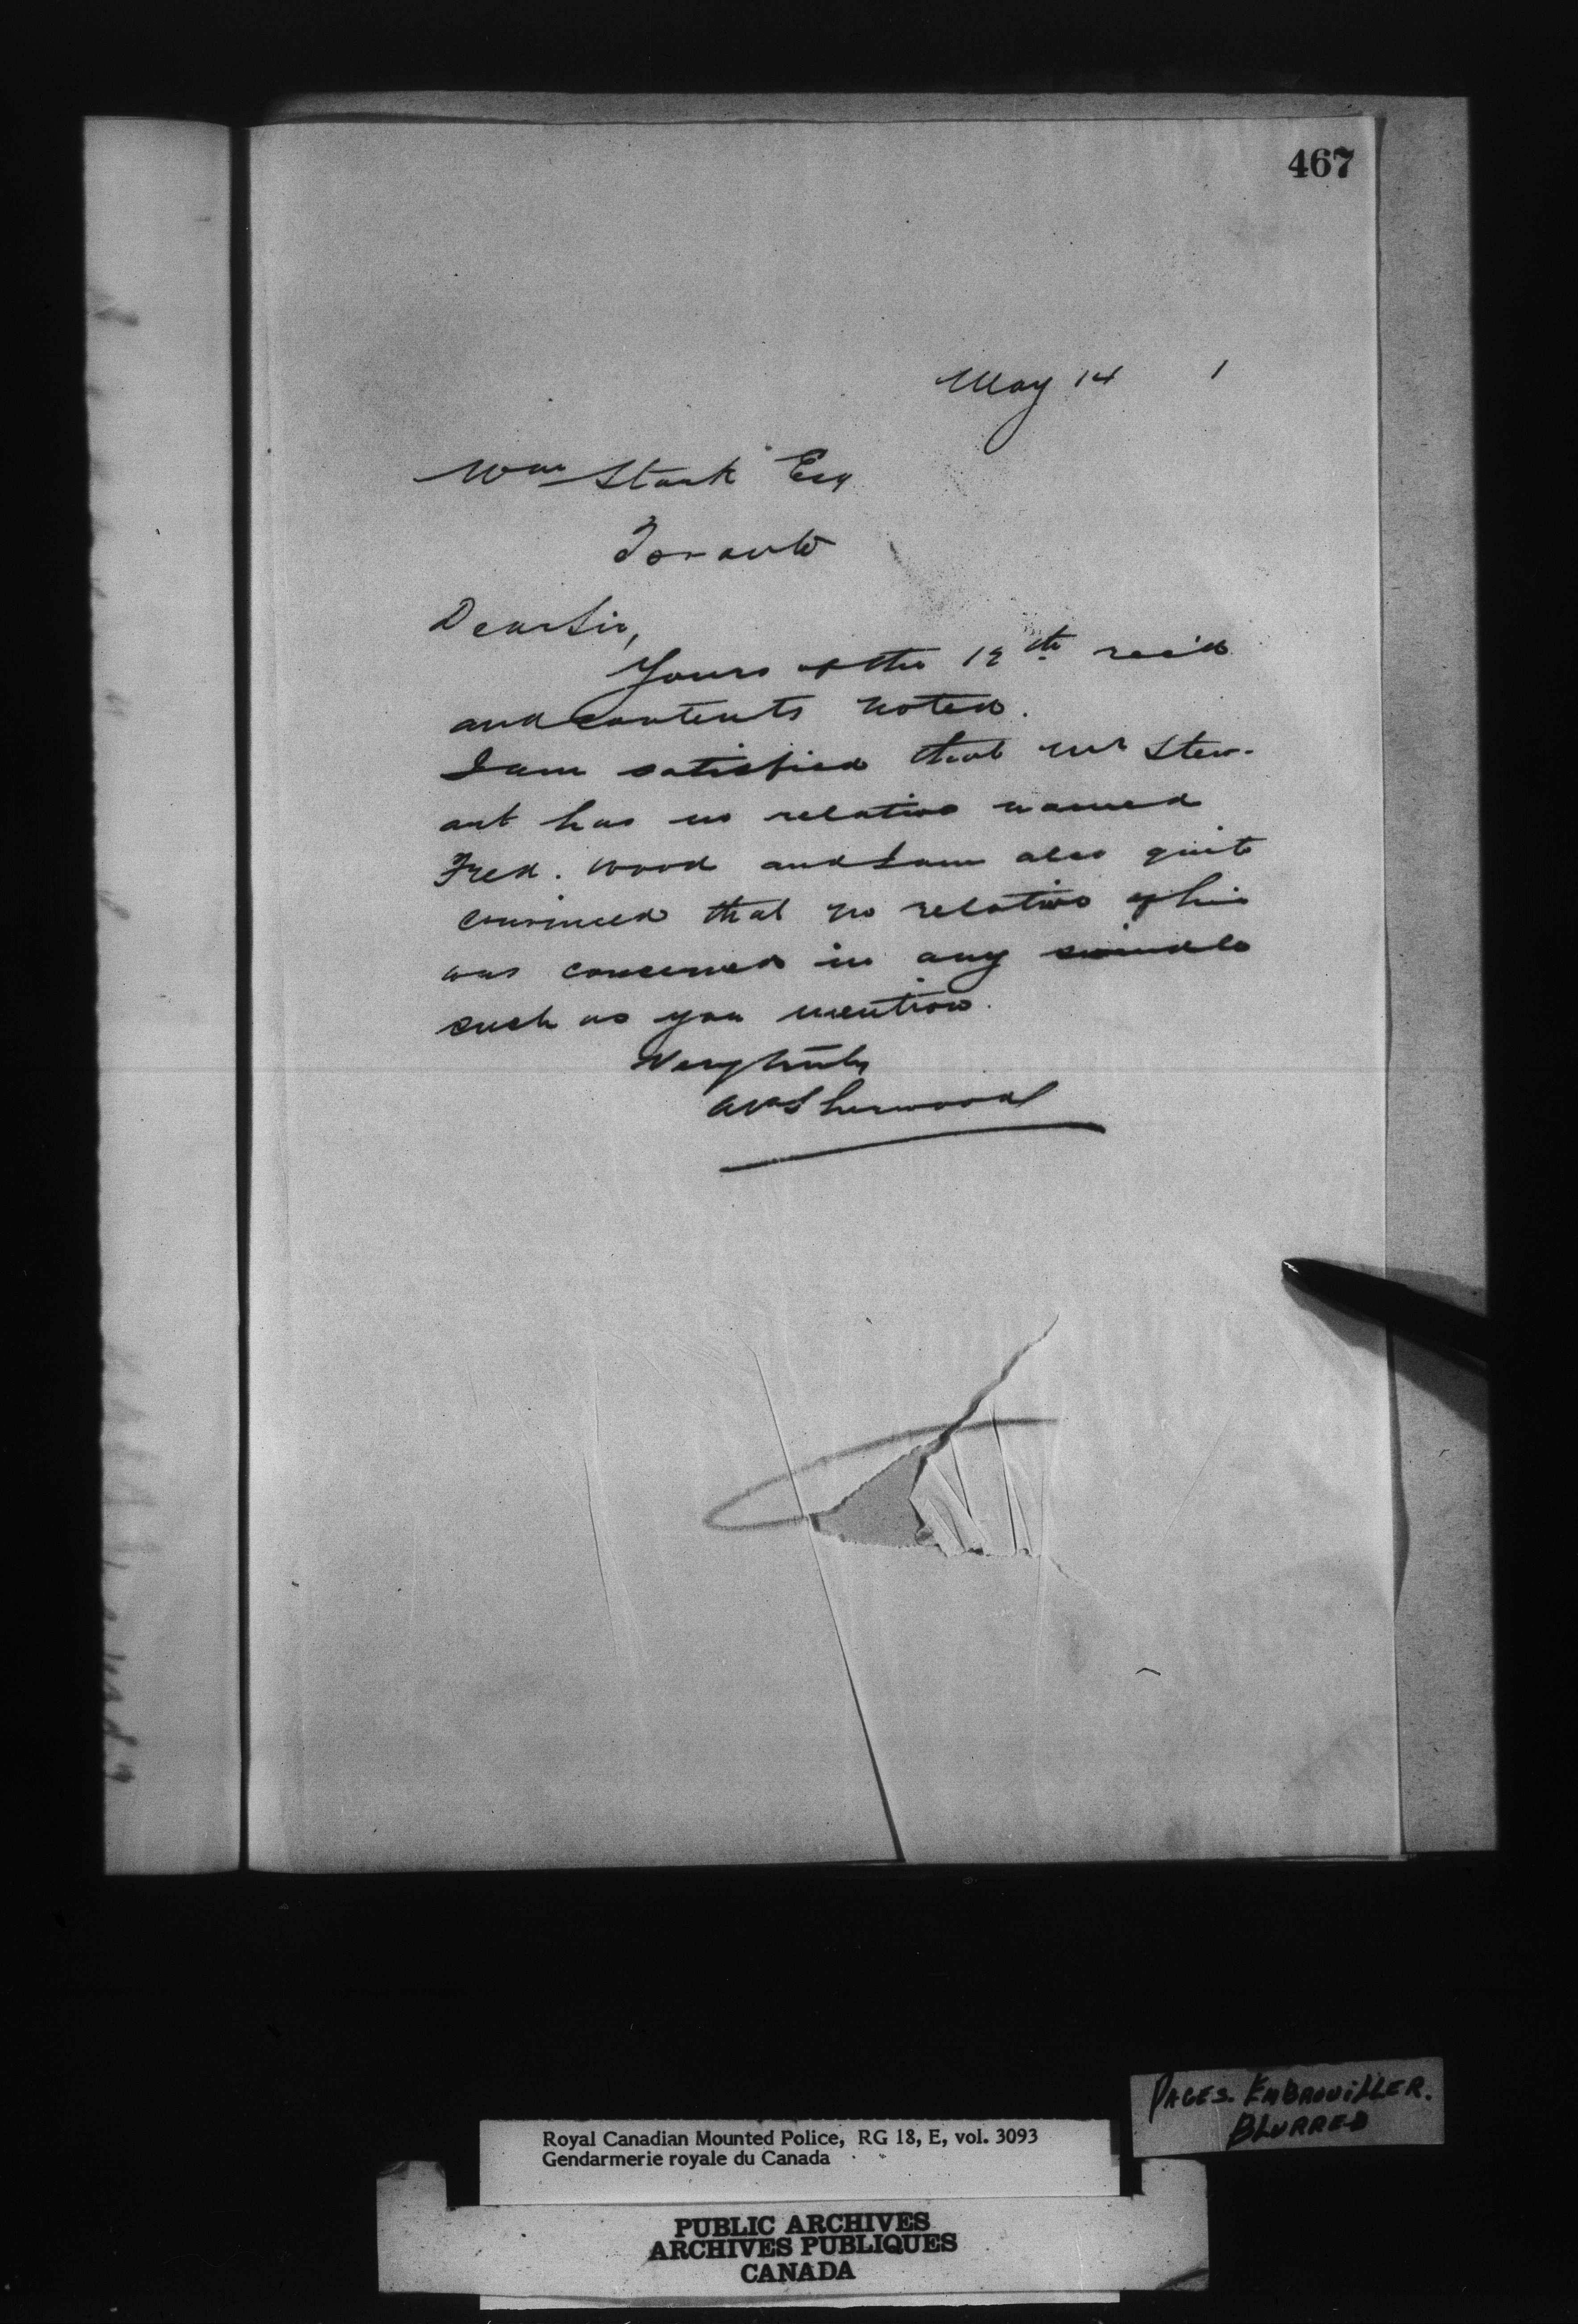 467
May 14 1
Wm Stark Esq
Toronto
Dear Sir,
Yours of the 12th rec'd
and contents noted.
I am satisfied that Mr Stew-
art has no relative named
Fred. Wood and I am also quite
convinced that no relative of his
was concerned in any swindle
such as you mention.
Very truly
AP Sherwood
PAGES. EMBROUILLER.
BLURRED
Royal Canadian Mounted Police, RG 18, E, vol. 3093
Gendarmerie royale du Canada
PUBLIC ARCHIVES
ARCHIVES PUBLIQUES
CANADA